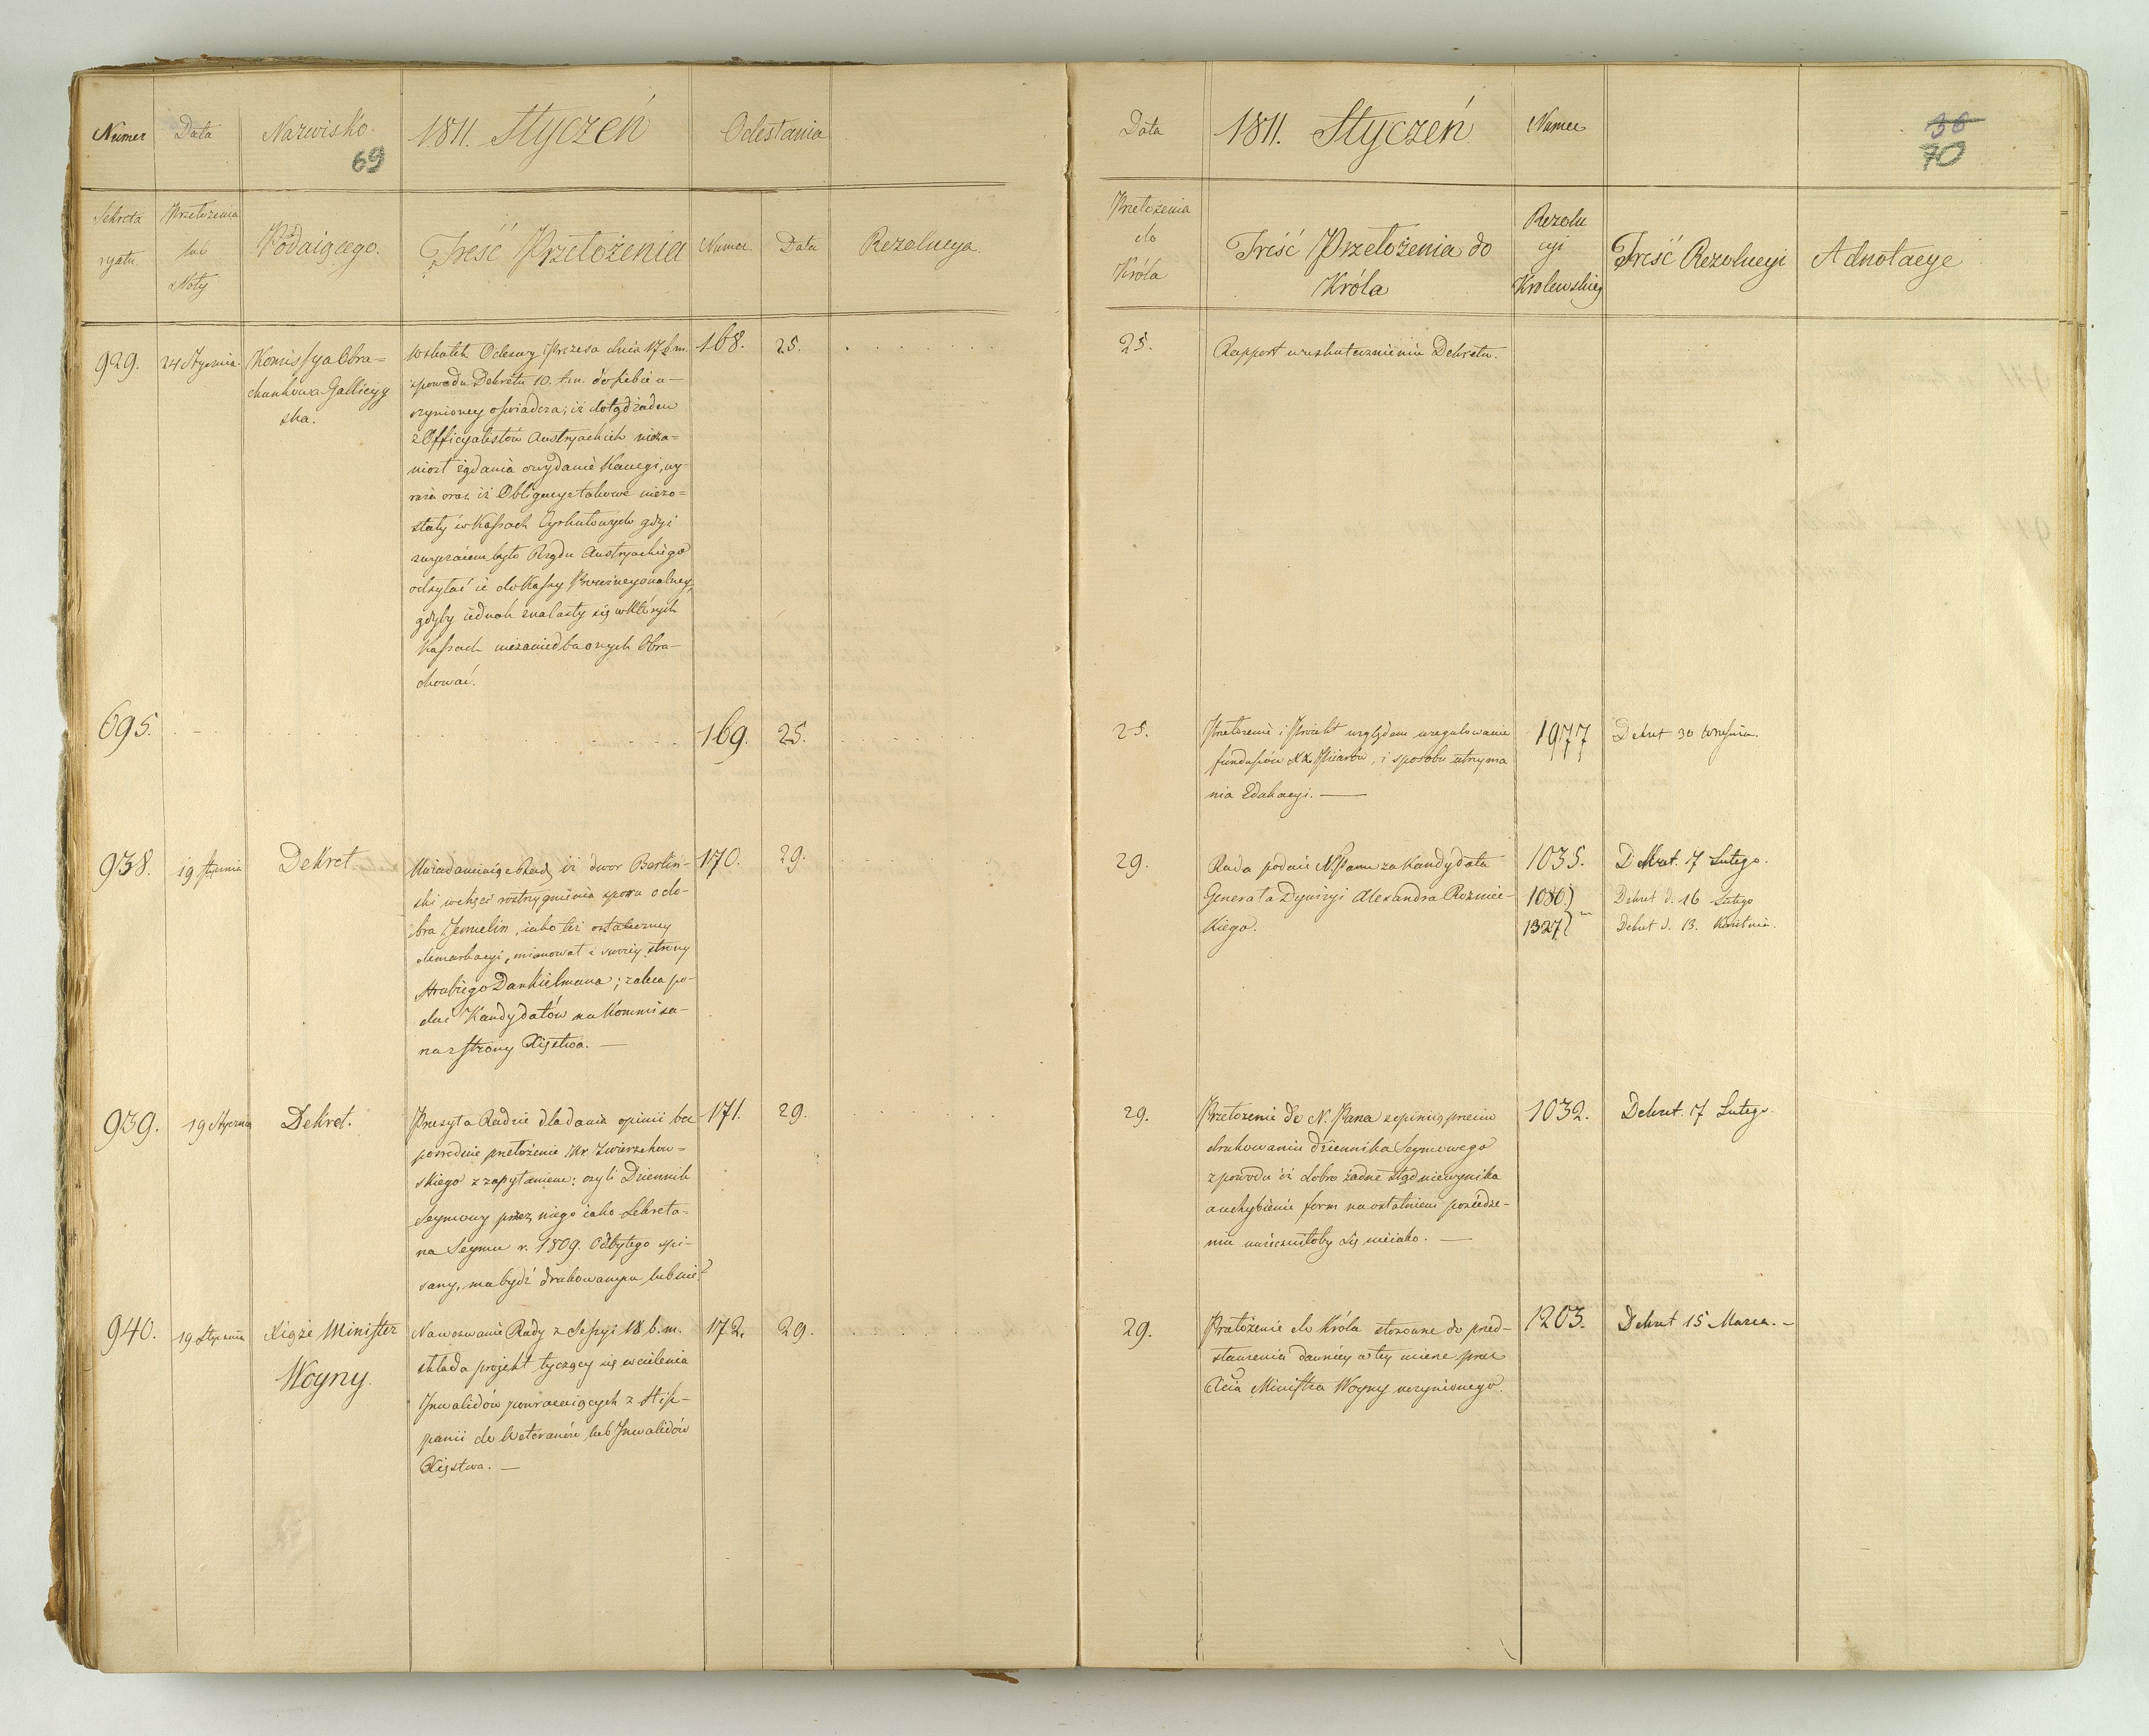 Numer Data Nazwisko 1811. Styczeń Odesłania
69
Sekreta
ryatu
Przełożenia
lub
Noty
Podaiącego.
Treść Przełożenia
Numer. Data Rezolucya
929. 24 Stycznia Komissya Obra=
chunkowa Galicyy
ska.
Wskutek Odezwy Prezesa dnia 17 b.m.
zpowodu Dekretu 10. t.m. do siebie u=
czynioney oświadcza; iż dotąd żaden
z Officyalistów Austryackich nieza=
niosł żądania o wydanie Kaucyi, wy=
raża oraz iż Obligacye takowe niezo=
stały w Kassach Cyrkułowych gdyż
zwyczaiem było Rządu Austryackiego
odsyłać ie do Kassy Prowincyonalney,
gdyby iednak znalazły się w których
Kassach niezaniedba onych Obra=
chować.
168. 25.
695. 169. 25.
938. 19 Stycznia Dekret
Uwiadamiaiąc Radę iż dwor Berlin=
ski wchęci rostrzygnienia sporu o do=
bra, iako też ostateczney
demarkacyi, mianował z swoiey strony
Hrabiego Dankielmana; zaleca po=
dać Kandydatów na Kommissa=
rza z strony Xięstwa. —
170. 29.
939. 19 Stycznia Dekret.
Przesyła Radzie dla dania opinii bez
posrednie przełożenie JPr. Zwierzchow=
skiego z zapytaniem: czyli Dziennik
Seymowy przez niego iako Sekreta=
rza Seymu r. 1809. Odbytego spi=
sany, ma bydź drukowanym lub nie?
171. 29.
940. 19 Stycznia Xiąże Minister
Woyny.
Na wezwanie Rady z Sessyi 18 b.m.
składa projekt tyczący się wcielenia
Inwalidów powracaiących z Hisz=
panii do Weteranów lub Inwalidów
Xięstwa. —
172. 29.
Data 1811. Styczeń Numer
36
70
Przełożenia
do
Króla
Treść Przełożenia do
Króla
Rezolu
cyi
Krolewskiey
Treść Rezolucyi Adnotacye
25. Rapport o uskutecznieniu Dekretu.
25. Przełożenie i Proiekt względem uregulowania
funduszów XX. Piiarów, i sposobu utrzyma
nia Edukacyi. —
1977 Dekret 30 Września.
29. Rada podaie N. Panu za Kandydata
Generała Dywizyi Alexandra Rożniec=
kiego.
1035. Dekret. 7 Lutego.
1080) Dekret d. 16 Lutego
1327) Dekret d. 13. Kwietnia.
29. Przełożenie do N. Pana z opinią przeciw
drukowaniu dziennika Seymowego
z powodu iż dobro żadne ztąd niewynika
a uchybienie form na ostatniem posiedze=
niu uwieczniłoby się nieiako. —
1032. Dekret. 7 Lutego.
29. Przełożenie do Króla stosowne do przed=
stawienia dawniey w tey mierze przez
Xcia Ministra Woyny uczynionego.
1203. Dekret 15 Marca. —